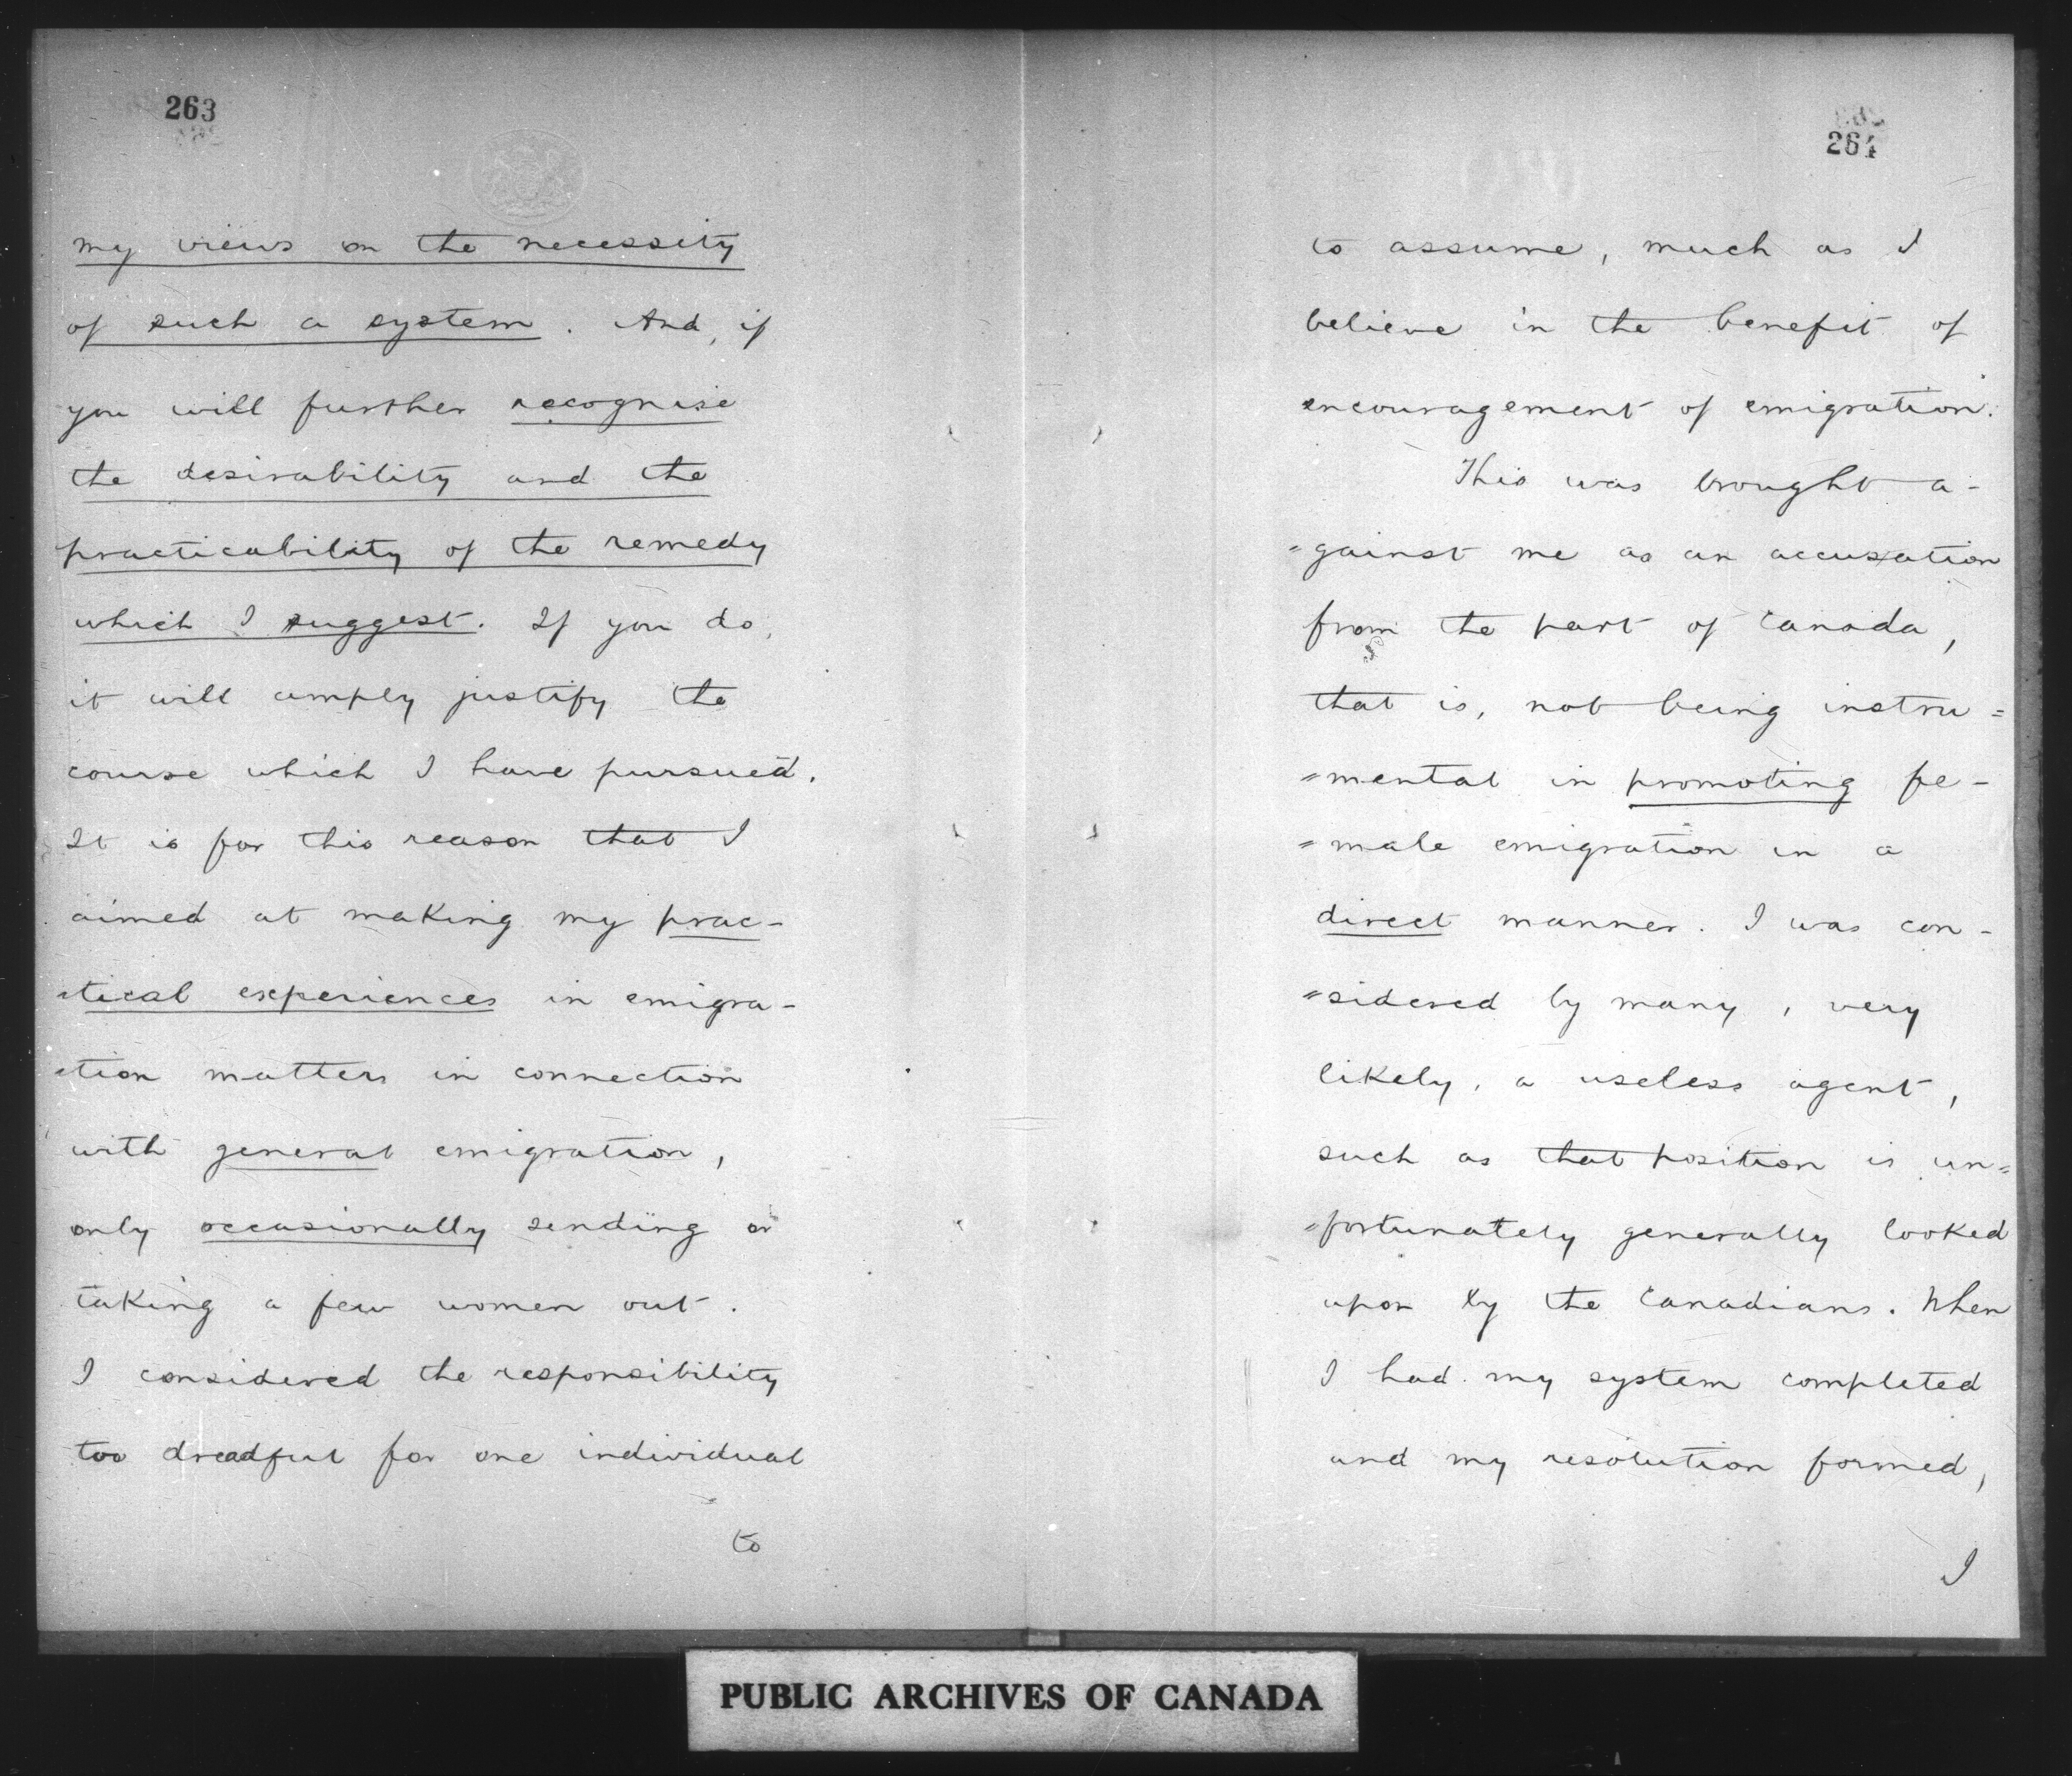 263
my views on the necessity
of such a system. And, if
you will further recognise
the desirability and the
practicability of the remedy
which I suggest. If you do,
it will amply justify the
course which I have pursued.
It is for this reason that I
aimed at making my prac-
=tical experiences in emigra-
=tion matters in connection
with general emigration,
only occasionally sending or
taking a few women out.
I considered the responsibility
too dreadful for one individual
to
264
to assume, much as I
believe in the benefit of
encouragement of emigration.
This was brought a-
=gainst me as an accusation
from the part of Canada,
that is, not being instru=
=mental in promoting fe-
=male emigration in a
direct manner. I was con-
=sidered by many, very
likely, a useless agent,
such as that position is un=
=fortunately generally looked
upon by the Canadians. When
I had my system completed
and my resolution formed,
I
PUBLIC ARCHIVES OF CANADA